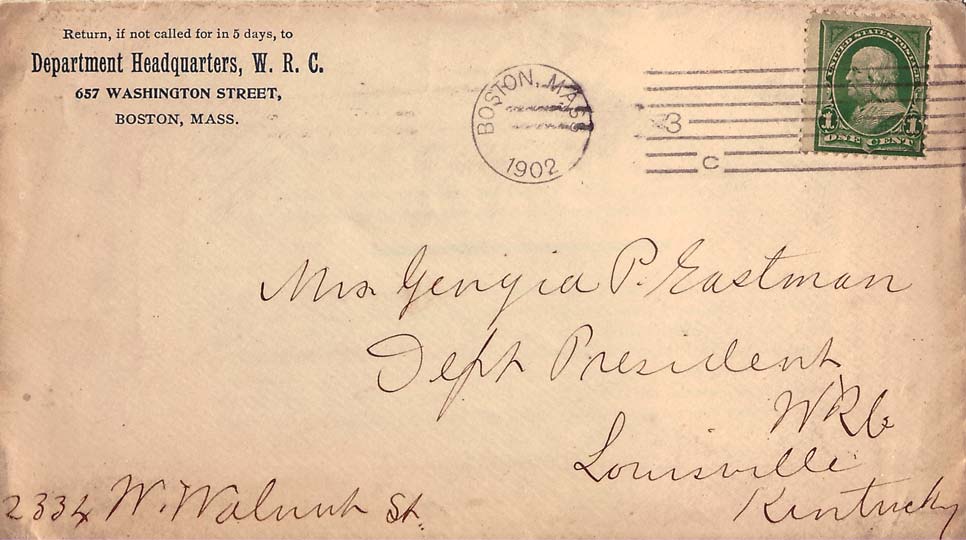 Return, if not called for in 5 days, to
Department Headquarters, W. R. C.
657 WASHINGTON STREET,
BOSTON, MASS.
BOSTON, MASS
1902
3
C
UNITED STATES POSTAGE
1 1
ONE CENT
Mrs. Georgia P. Eastman
Dept President
W R C
Louisville
Kentucky
2334 W. Walnut St.